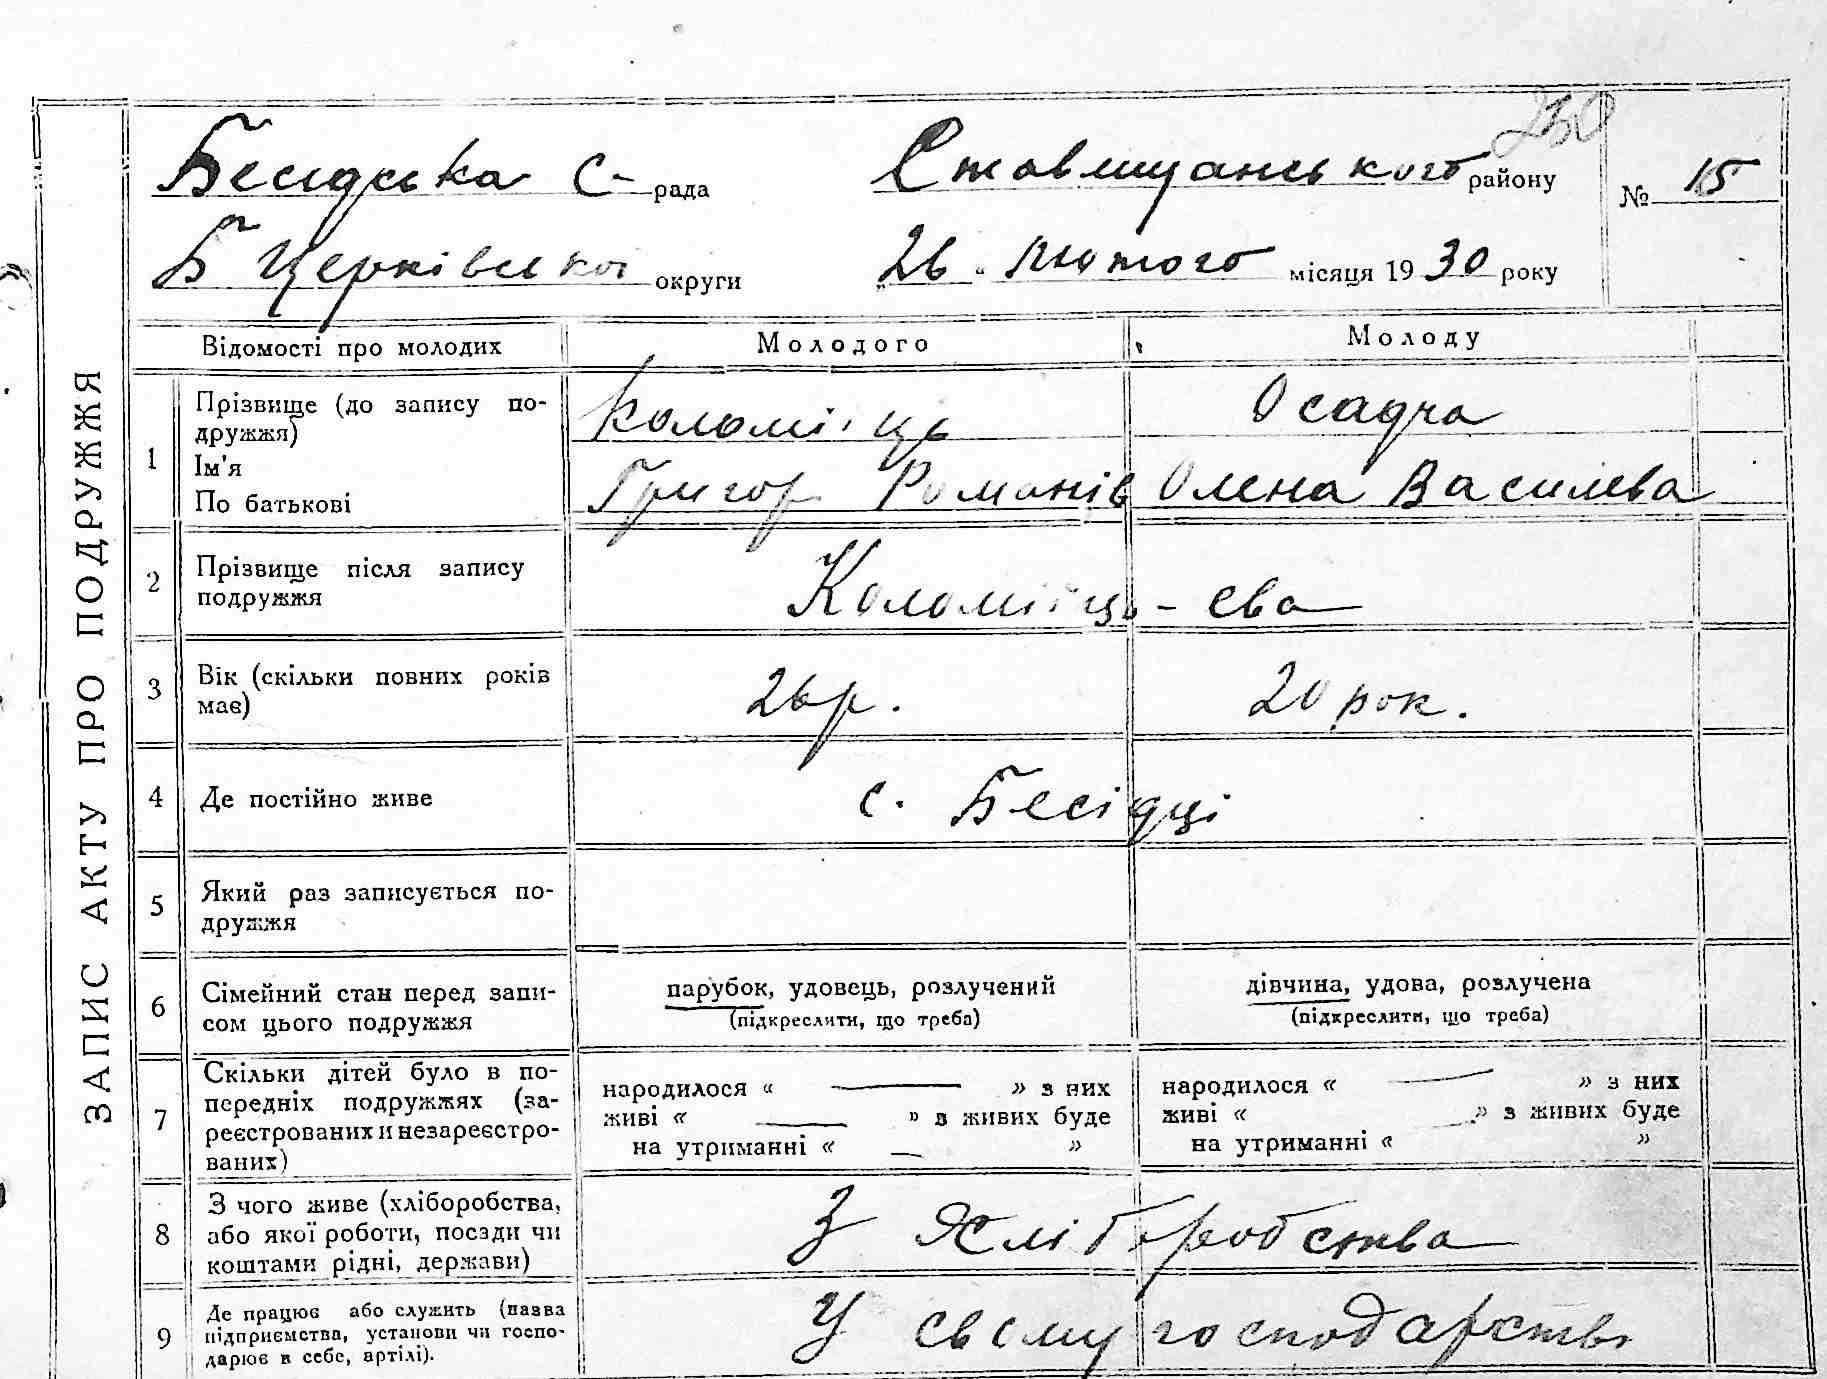 230
Бесідська С- рада Ставищанського району № 15
Б Церківської округи „26 " Лютого місяця 1930 року
ЗАПИС АКТУ ПРО ПОДРУЖЖЯ
Відомості про молодих Молодого Молоду
1 Прізвище (до запису по-
дружжя) Коломієць Осадча
Ім'я
По батькові Григор Романів Олена Василева
2 Прізвище після запису
подружжя Коломієць - ева
3 Вік (скільки повних років
має) 26 р. 20 рок.
4 Де постійно живе с. Бесідці
5 Який раз записується по-
дружжя
6 Сімейний стан перед запи-
сом цього подружжя
парубок, удовець, розлучений
(підкреслити, що треба)
дівчина, удова, розлучена
(підкреслити, що треба)
7 Скільки дітей було в по-
передніх подружжях (за-
реєстрованих и незареєстро-
ваних)
народилося « — » з них
живі « — » з живих буде
на утриманні « — »
народилося « — » з них
живі « — » з живих буде
на утриманні « »
8 З чого живе (хліборобства,
або якої роботи, посади чи
коштами рідні, держави)
З Хліборобства
9 Де працює або служить (назва
підприємства, установи чи госпо-
дарює в себе, артілі).
У свому господарстві